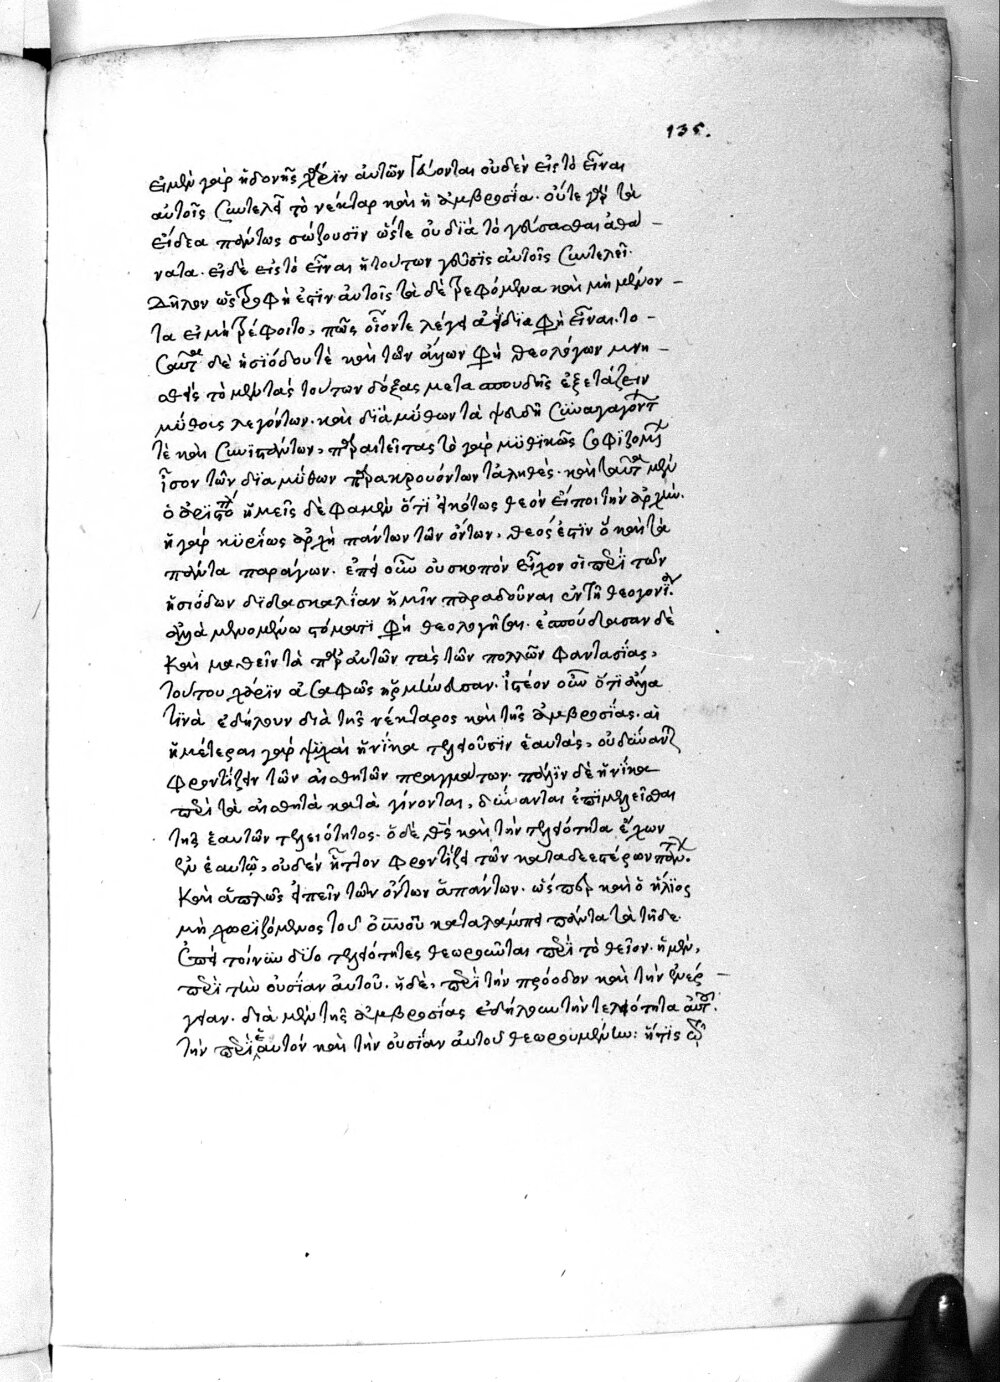 135.
εἰ μὲν γὰρ ἡδονῆς χάριν αὐτῶν γεύονται οὐδὲν εἰς τὸ εἶναι
αὐτοῖς συντελεῖ τὸ νέκταρ καὶ ἡ ἀμβροσία. οὔτε γὰρ τὰ
εἴδεα πάντως σώζουσιν ὥστε οὐ διὰ τὸ γεύσασθαι ἀθά-
νατα. εἰ δὲ εἰς τὸ εἶναι ἡ τούτων γεῦσις αὐτοῖς συντελεῖ.
δῆλον ὡς τροφὴ ἐστὶν αὐτοῖς τὰ δὲ τρεφόμενα καὶ μὴ μένον-
τα εἰ μὴ τρέφοιτο, πῶς οἷόν τε λέγειν ἀΐδια φησὶ εἶναι. το-
σαῦτα δὲ ἡσιόδου τὲ καὶ τῶν ἄλλων φησὶ θεολόγων μνη-
σθεὶς τὸ μὲν τὰς τούτων δόξας μετα σπουδῆς ἐξετάζειν
μύθοις λεγόντων. καὶ διὰ μύθων τὰ ψευδῆ συναγαγόντων
τὲ καὶ συνιστάντων, παραιτεῖται τὸ γὰρ μυθικῶς σοφιζομένων
ἴσον τῶν δια μύθων παρακρουόντων τἀληθές. καὶ ταῦτα μὲν
ὁ ἀριστο ἡμεῖς δὲ φαμὲν ὅτι εἰκότως θεὸν εἴποι τὴν ἀρχήν.
ἡ γὰρ κυρίως ἀρχὴ πάντων τῶν ὄντων, θεός ἐστιν ὁ καὶ τὰ
πάντα παράγων. ἐπεὶ οὖν οὐ σκοπὸν εἶχον οἱ περὶ τῶν
ἡσιόδων διδασκαλίαν ἡμῖν παραδοῦναι ἐν τῇ θεογονίᾳ.
ἀλλὰ μεμομένω στόματι φησὶ θεολογῆσαι. ἐσπούδασαν δὲ
καὶ μαθεῖν τὰ παρ αὐτῶν τὰς τῶν πολλῶν φαντασίας,
τούτου χάριν ἀσαφῶς ἡρμήνευσαν. ἰστέον οὖν ὅτι ἄλλα
τινὰ ἐδήλουν διὰ τῆς νέκταρος καὶ τῆς ἀμβροσίας. αἱ
ἡμέτεραι γὰρ ψυχαὶ ἡνίκα τελειοῦσιν ἑαυτάς, οὐ δύνανται
φροντίζειν τῶν αἰσθητῶν πραγμάτων. πάλιν δὲ ἡνίκα
περὶ τὰ αἰσθητὰ κατὰ γίνονται, δύνανται ἐπιμελεῖσθαι
τῆς ἑαυτῶν τελειότητος. ὁ δὲ θεὸς καὶ τὴν τελειότητα ἔχων
ἐν ἑαυτῷ, οὐδὲν ἧττον φροντίζει τῶν καταδεεστέρων πάντων.
καὶ ἁπλῶς εἰπεῖν τῶν ὄντων ἁπάντων. ὥσπερ καὶ ὁ ἥλιος
μὴ χωριζόμενος τοῦ οὐνοῦ καταλάμπει πάντα τὰ τῆδε
ἐπεὶ τοίνυν δύο τελειότητες θεωροῦνται περὶ τὸ θεῖον. ἡ μὲν,
περὶ τὴν οὐσίαν αὐτοῦ. ἡ δὲ, περὶ τὴν πρόοδον καὶ τὴν ἐνέρ-
γειαν. διὰ μὲν τῆς ἀμβροσίας ἐδήλουν τὴν τελειότητα αὐτοῦ.
τὴν περὶ ἑαυτόν καὶ τὴν οὐσίαν αὐτοῦ θεωρουμένην: ἥτις